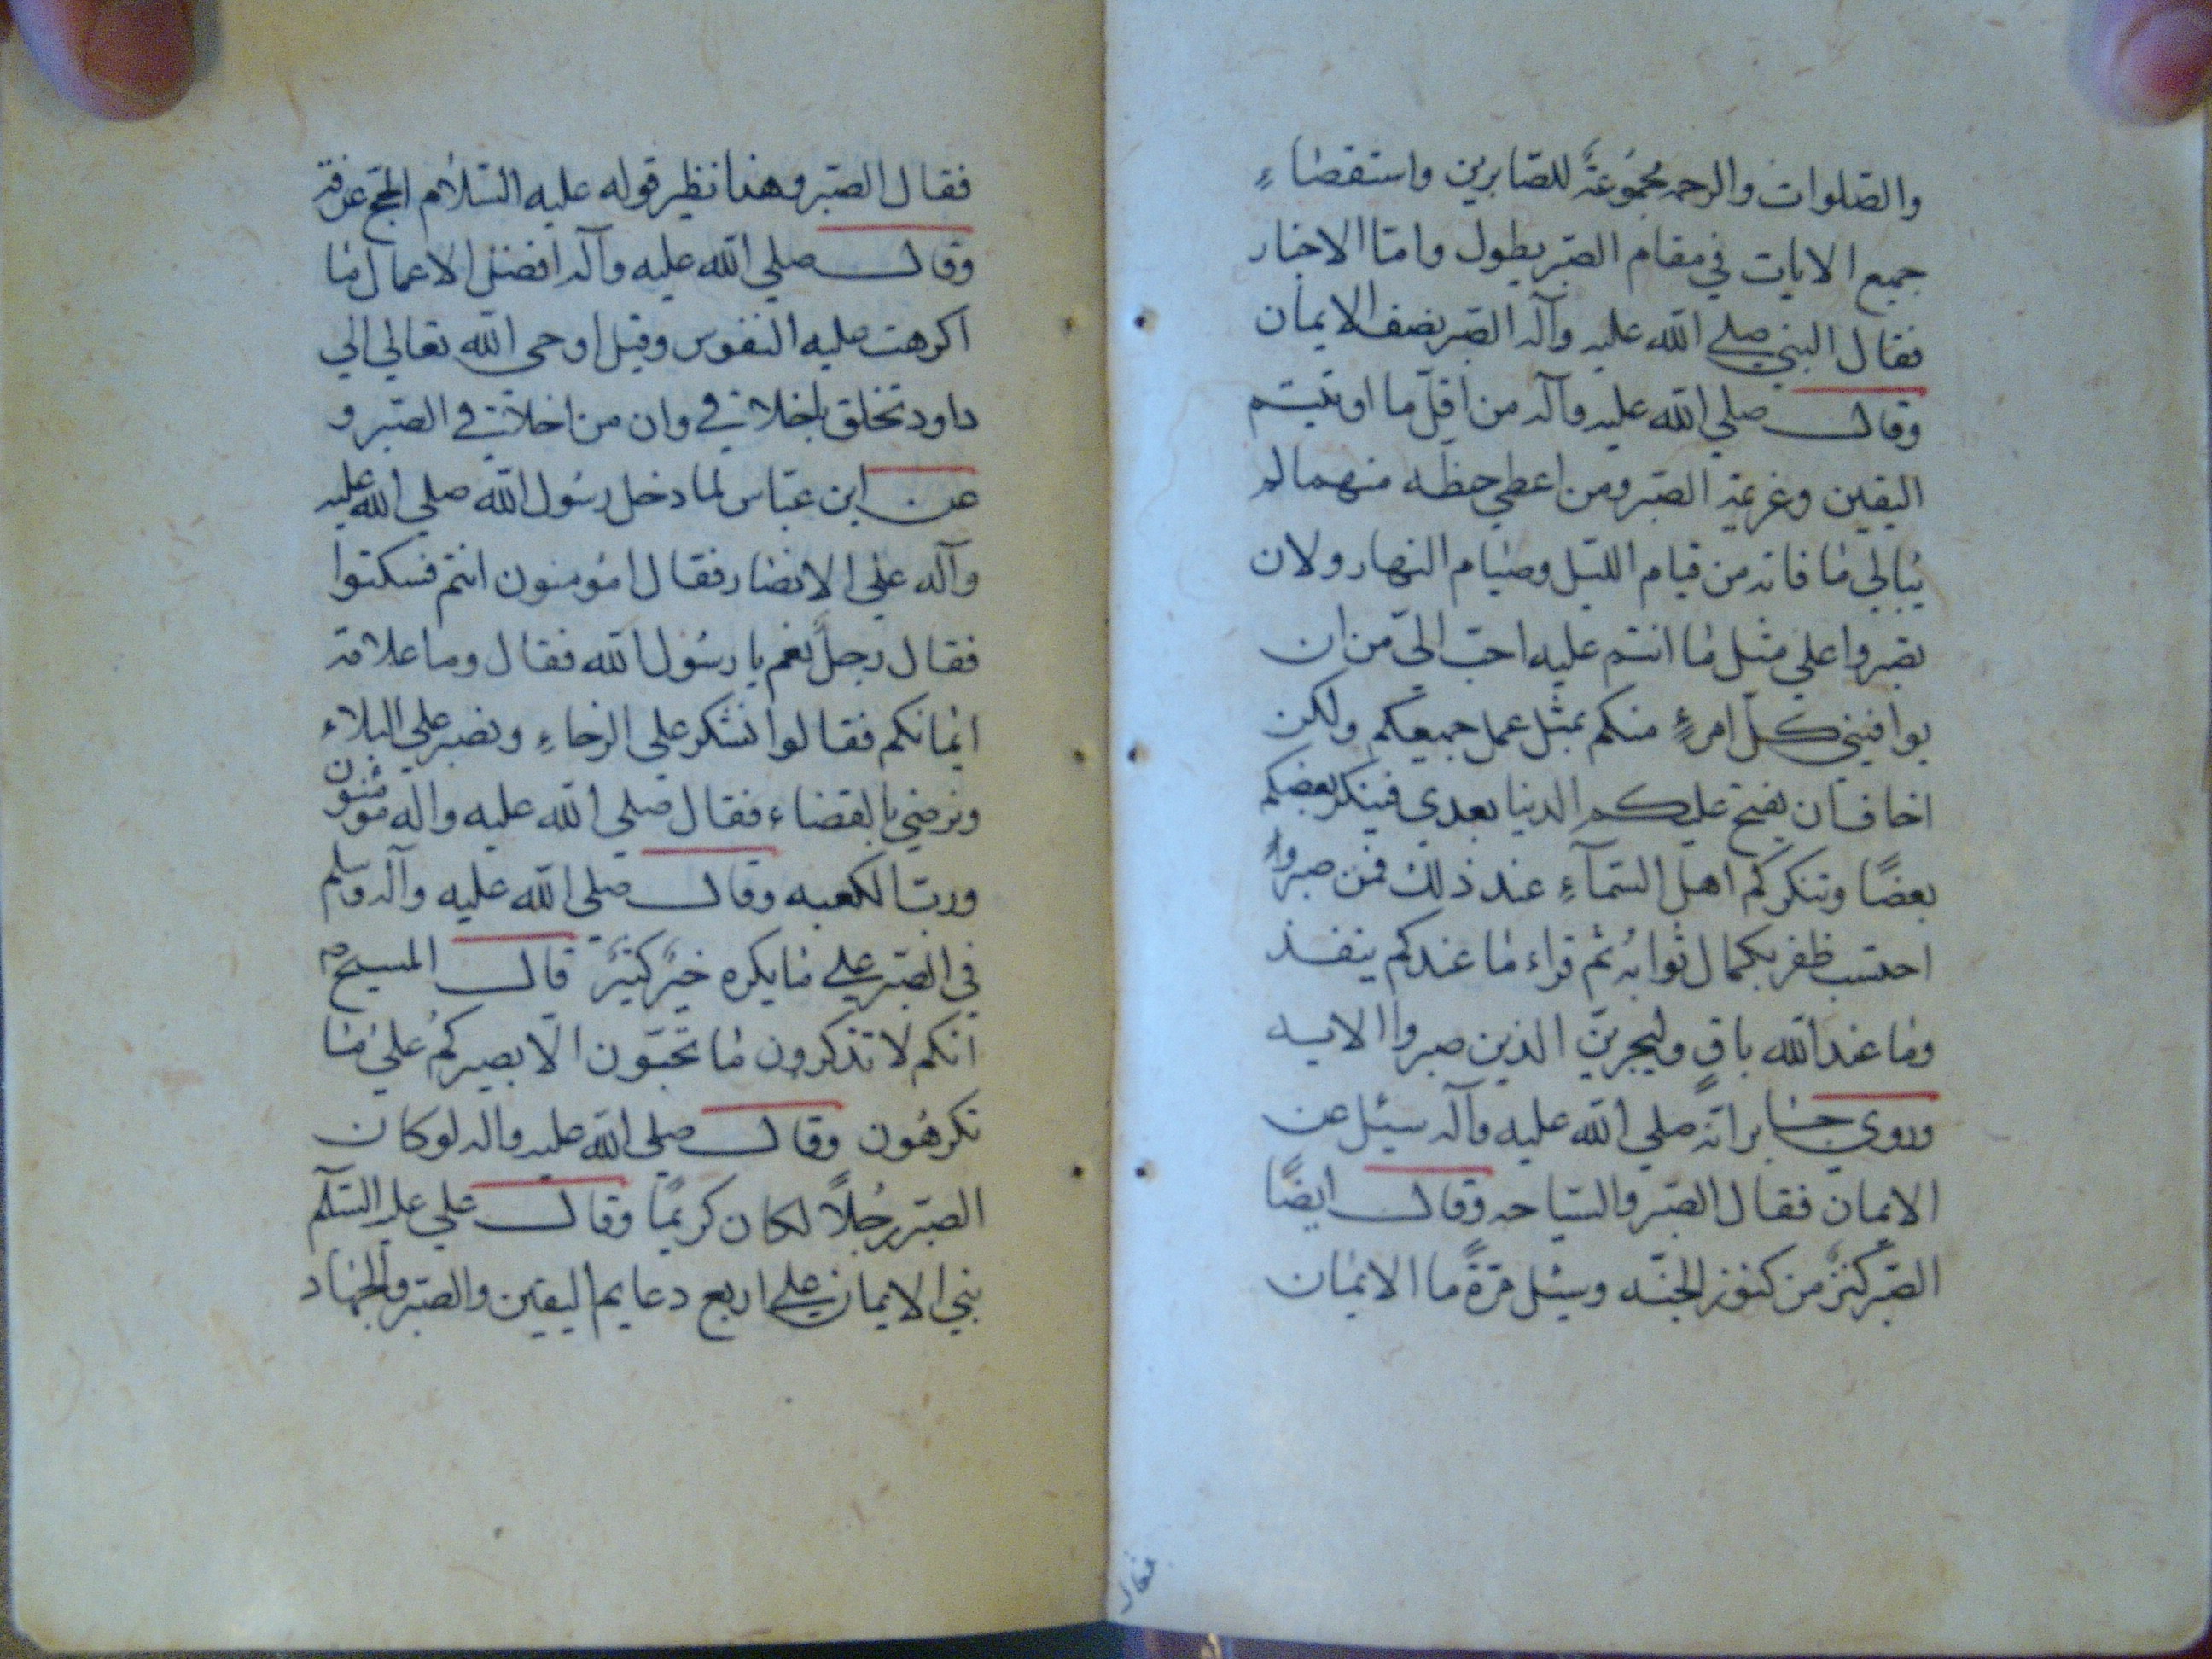 والصّلوات والرحمه مجموعةً للصّابرين واستقصاءِ
جميع الايات في مقام الصّبر يطول وامّا الاخبار
فقال النبي صلي الله عليه وآله الصّبر نصف الايمان
وقال صلي الله عليه وآله من اقلّ ما اوتيتم
اليقين وعزيمة الصّبر ومن اعطي حظه منهما لم
يبالي ما فاته من قيام الليل وصيام النهار ولان
تصبروا علي مثل ما انتم عليه احبّ اليّ من ان
يوافيني كلّ امرءٍ منكم بمثل عمل جميعكم ولكن
اخاف ان يفتح عليكم الدنيا بعدي فينكر بعضكم
بعضًا وتنكركم اهل السّمآءِ عند ذلك فمن صبر و
احتسب ظفر بكمال ثوابهُ ثم قراء ما عندكم ينفد
وما عند الله باقٍ وليجزينّ الذين صبروا الايه
وروي جابر انّه صلي الله عليه وآله سيئل عن
الايمان فقال الصّبر والسّماحه وقال ايضًا
الصّبر كنزٌ من كنوز الجنّه وسئل مرّةً ما الايمان
فقال
فقال الصّبر وهذا نظير قوله عليه السّلام الحجّ عرفة
وقال صلي الله عليه وآله افضل الاعمال ما
اكرهت عليه النفوس وقيل اوحي الله تعالي الي
داود تخلق باخلاقي وان من اخلاقي الصّبر و
عن ابن عبّاس لما دخل رسُول الله صلي الله عليه
وآله علي الانصار فقال امؤمنون انتم فسكتوا
فقال رجلٌ نعم يا رسُول الله فقال وما علامة
ايمانكم فقالوا نشكر علي الرخاءِ ونصبر علي البلاء
ونرضي بالقضاء فقال صلي الله عليه واله مؤمنون
وربّ الكعبه وقال صلي الله عليه وآله وسلم
في الصّبر علي ما يكره خيرٌ كثيرٌ قال المسيح ع
انكم لا تدكرون ما تحبّون الّا بصبركمُ علي ما
تكرهُون وقال صلي الله عليه واله لو كان
الصّبر رجُلاً لكان كريمًا وقال علي عليه السّلام
بني الايمان علي اربع دعايم اليقين والصّبر والجهاد